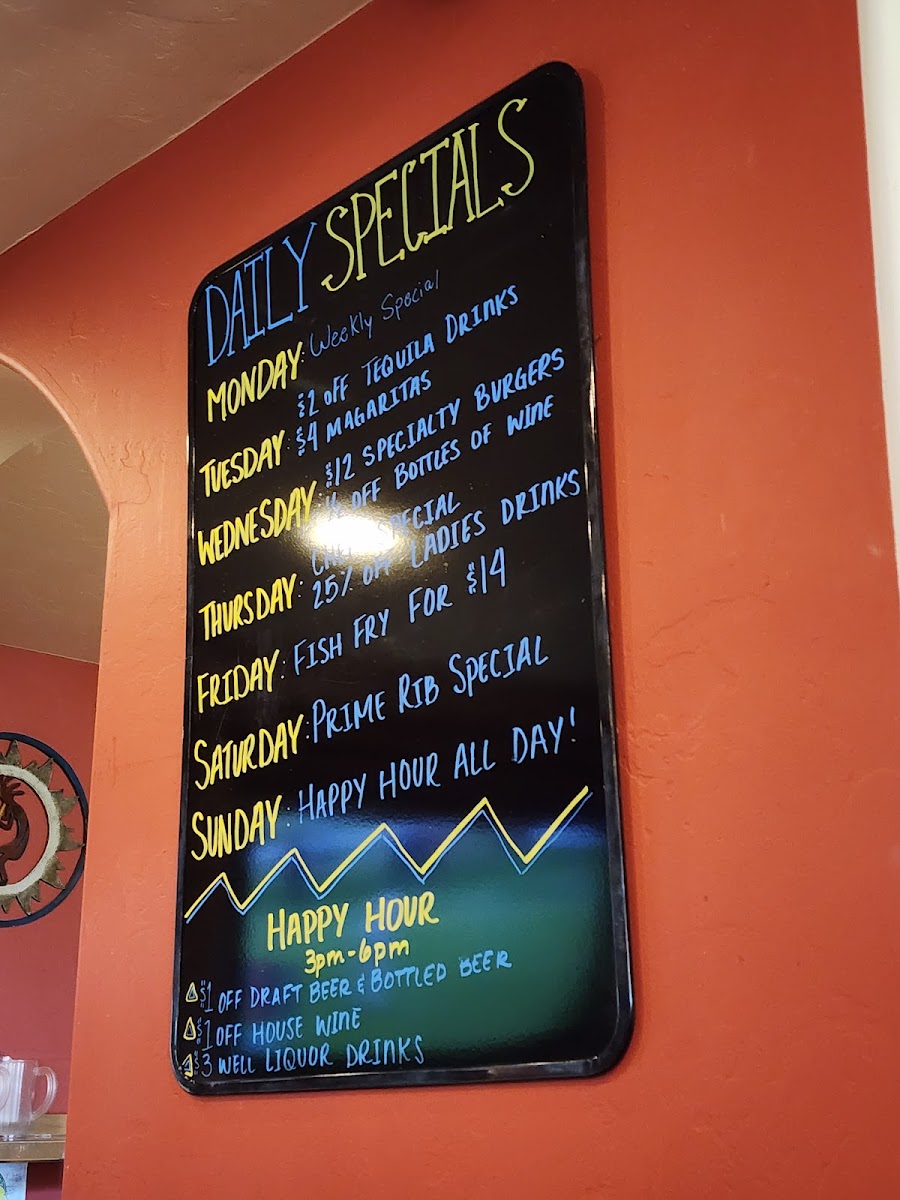 DAILY SPECIALS
MONDAY: Weekly Special
$2 OFF TEQUILA DRINKS
TUESDAY: $4 MAGARITAS
$12 SPECIALTY BURGERS
WEDNESDAY: ½ OFF BOTTLES OF WINE
SPECIAL
THURSDAY: 25% OFF LADIES DRINKS
FRIDAY: FISH FRY FOR $14
SATURDAY: PRIME RIB SPECIAL
SUNDAY: HAPPY HOUR ALL DAY!
HAPPY HOUR
3pm-6pm
$1 OFF DRAFT BEER & BOTTLED BEER
$1 OFF HOUSE WINE
$3 WELL LIQUOR DRINKS